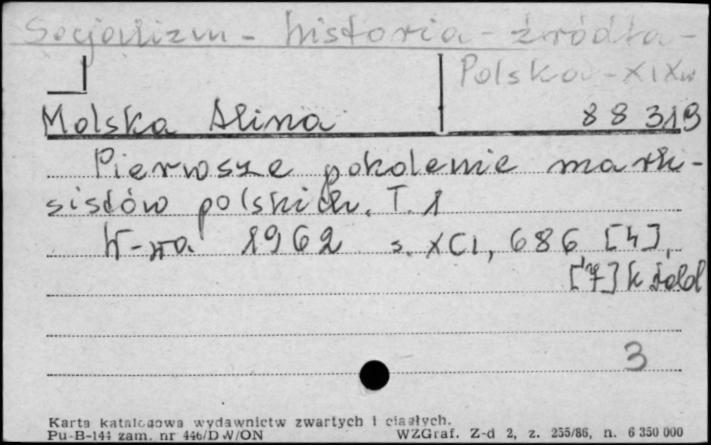 Socjalizm - historia - źródła -
Polska - XIX w
Molska Alina 88 319
Pierwsze pokolenie mark-
sistów polskich. T. 1
W-wa 1962 s. XCI, 686 [4],
[7] k tabl
3
Karta katalogowa wydawnictw zwartych i ciągłych.
Pu-B-144 zam. nr 446/DW/ON WZGraf. Z-d 2, z. 255/86, n. 6 350 000